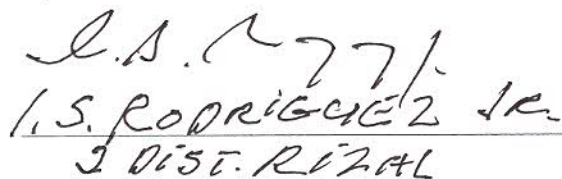 I. S. RODRIGUEZ JR.
2 DIST. RIZAL